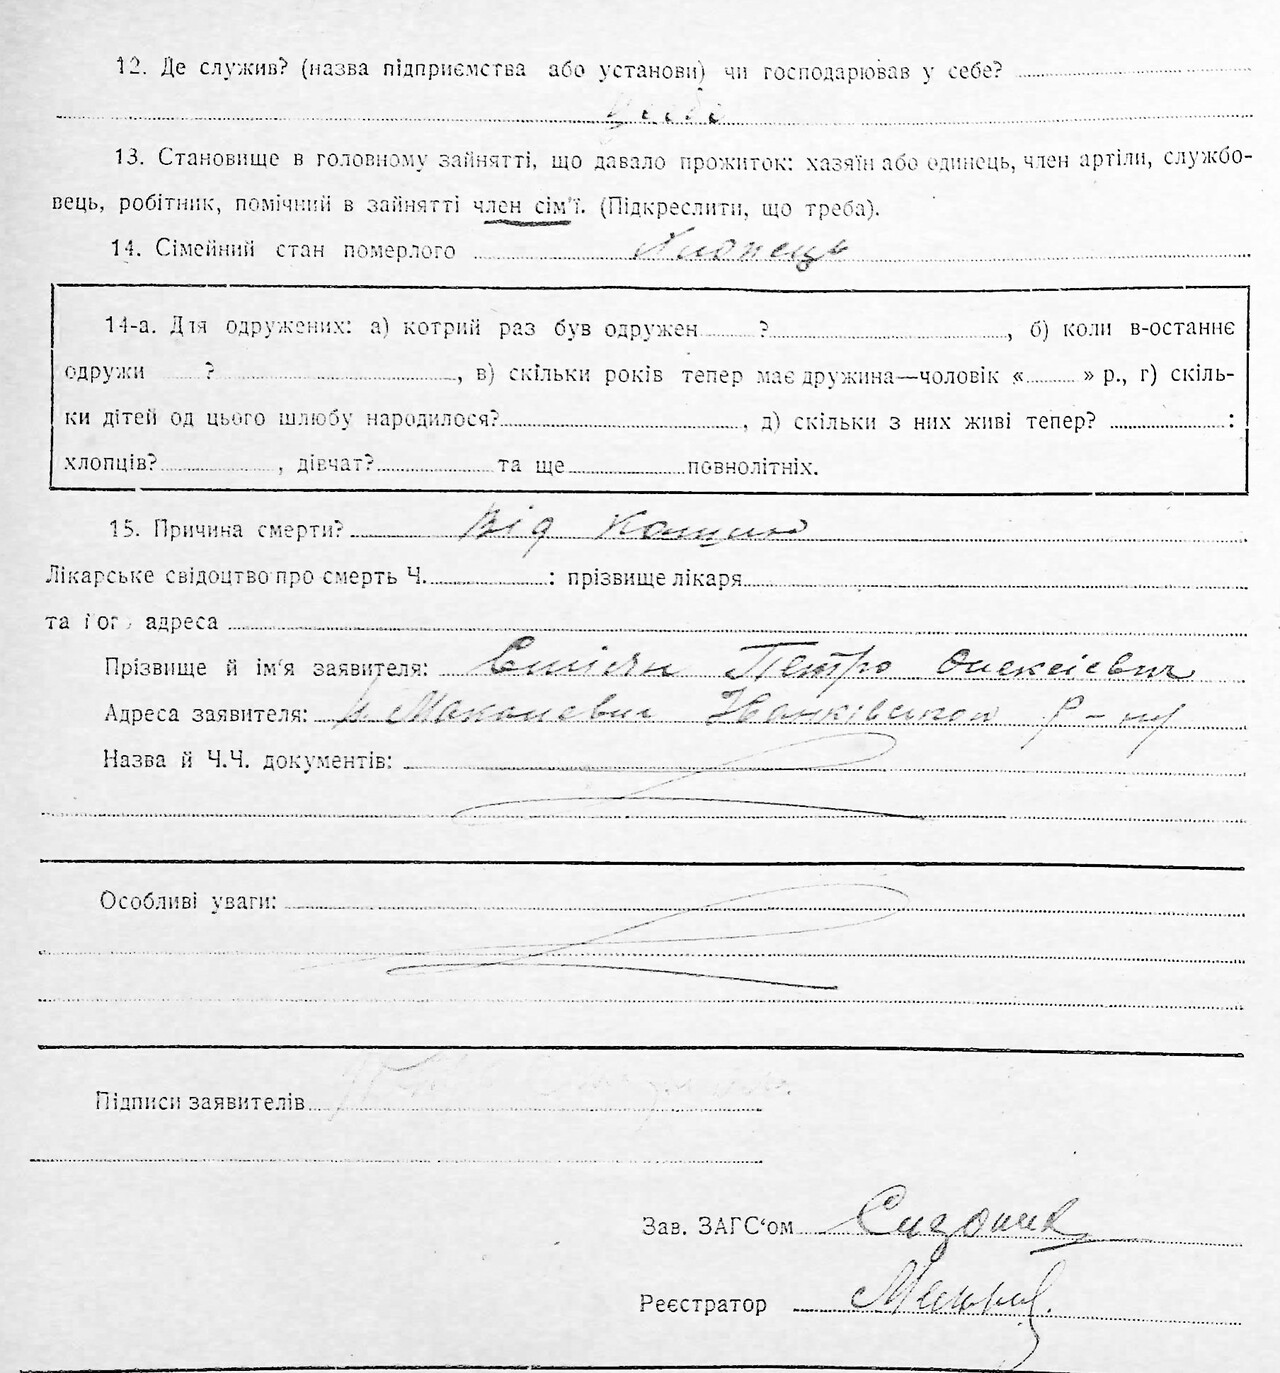 12. Де служив? (назва підприємства або установи) чи господарював у себе?
у себе
13. Становище в головному зайнятті, що давало прожиток: хазяїн або одинець, член артіли, службо-
вець, робітник, помічний в зайнятті член сім'ї. (Підкреслити, що треба).
14. Сімейний стан померлого
14-а. Для одружених: а) котрий раз був одружен ? , б) коли в-останнє
одружи ? , в) скільки років тепер має дружина—чоловік « » р., г) скіль-
ки дітей од цього шлюбу народилося? , д) скільки з них живі тепер? :
хлопців? , дівчат? та ще повнолітніх.
15. Причина смерти? Від
Лікарське свідоцтво про смерть Ч. : прізвище лікаря
та його адреса
Прізвище й ім'я заявителя: Петро Олексієвич
Адреса заявителя: Іванківськой р-ну
Назва й Ч.Ч. документів:
Особливі уваги:
Підписи заявителів
Зав. ЗАГС'ом
Реєстратор